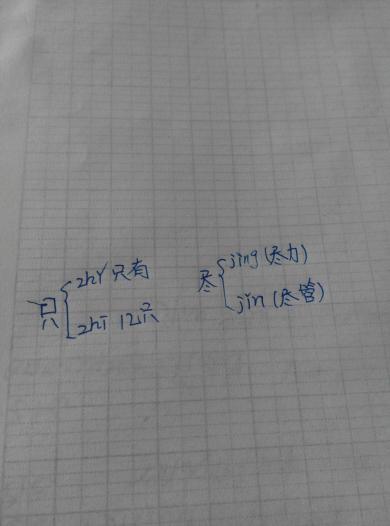 只 zhǐ 只有
zhī 12只
尽 jìng (尽力)
jǐn (尽管)